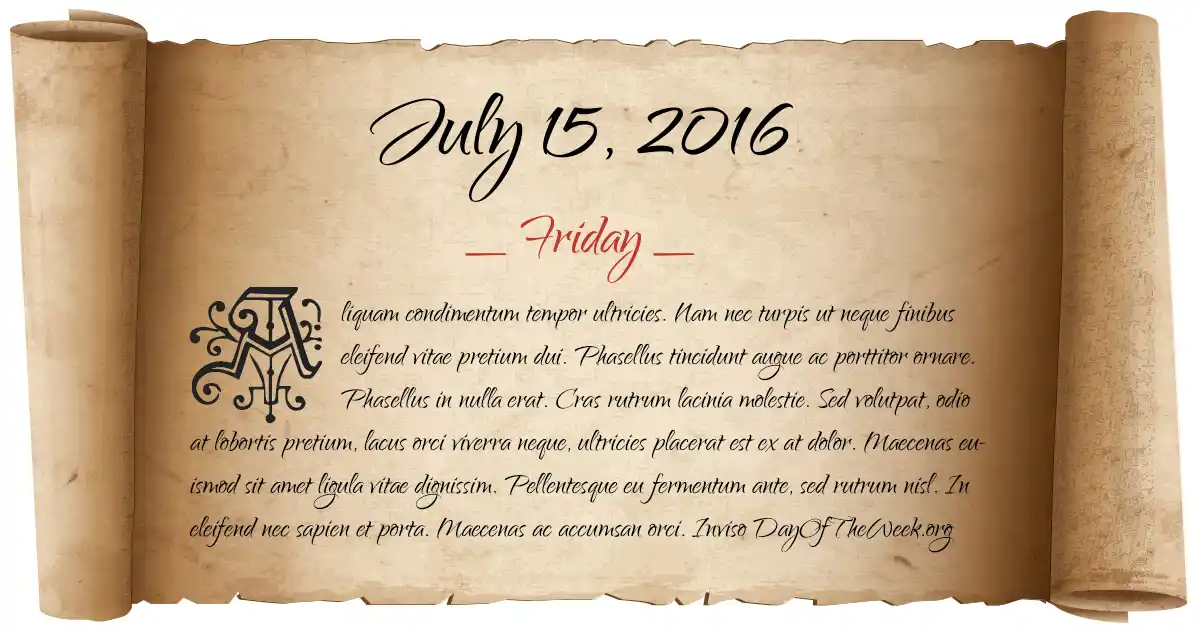 July 15, 2016
Friday
Aliquam condimentum tempor ultricies. Nam nec turpis ut neque finibus
eleifend vitae pretium dui. Phasellus tincidunt augue ac porttitor ornare.
Phasellus in nulla erat. Cras rutrum lacinia molestie. Sed volutpat, odio
at lobortis pretium, lacus orci viverra neque, ultricies placerat est ex at dolor. Maecenas eu-
ismod sit amet ligula vitae dignissim. Pellentesque eu fermentum ante, sed rutrum nisl. In
eleifend nec sapien et porta. Maecenas ac accumsan orci. Inviso DayOfTheWeek.org